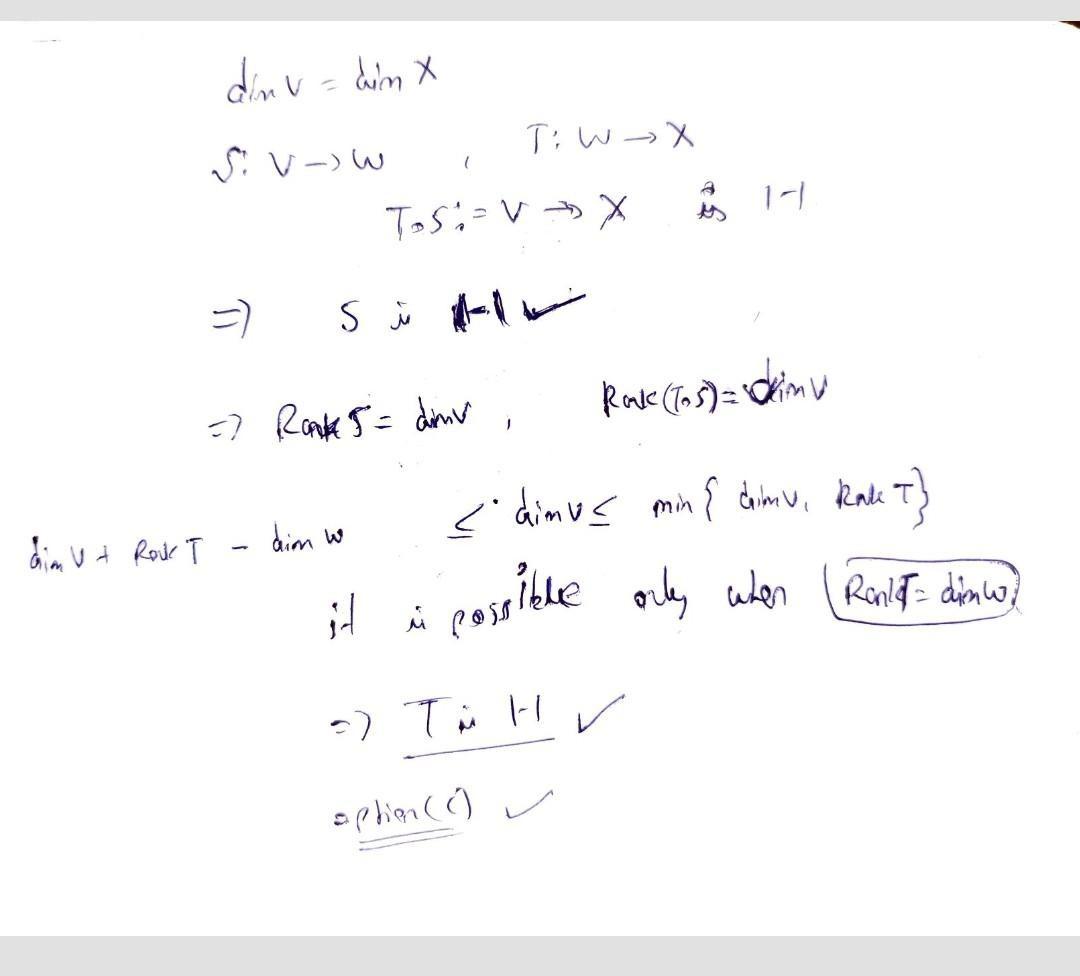 dim V = dim X
S: V → W , T: W → X
T∘S := V → X is 1-1
⇒ S is 1-1 ✓
⇒ Rank S = dim V , Rank (T∘S) = dim V
dim V + Rank T - dim W ≤ dim V ≤ min { dim V, Rank T }
it is possible only when Rank T = dim W.
⇒ T is 1-1 ✓
option (C) ✓